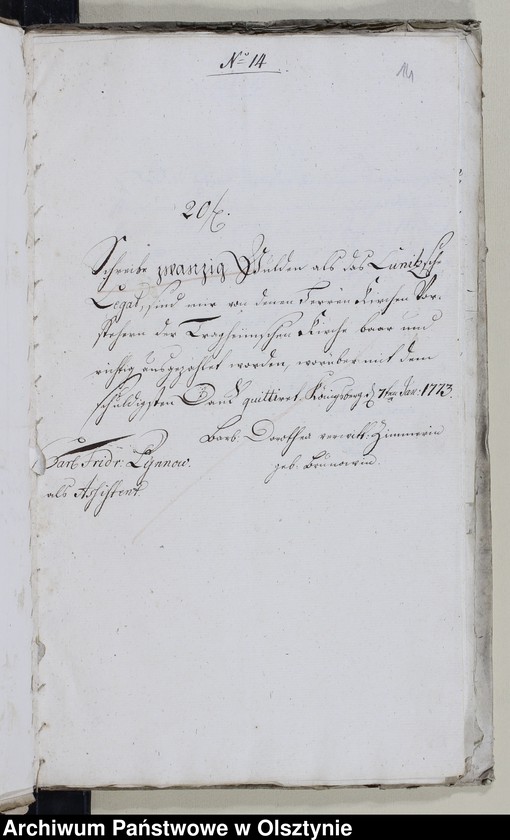 No 14
14
20 f.
Schreibe zwanzig Gulden als das Lunitzsche
Legat, sind mir von denen Herren Kirchen Vor-
stehern der Tragheimschen Kirche baar und
richtig ausgezahlet worden, worüber mit dem
schuldigsten Danck quittiret. Königsberg d 7ten Jan: 1773.
Barb: Dorothea verwitt: Zimmerin
geb.
Carl Fridr: Lÿnnow.
als Assistent
Archiwum Państwowe w Olsztynie